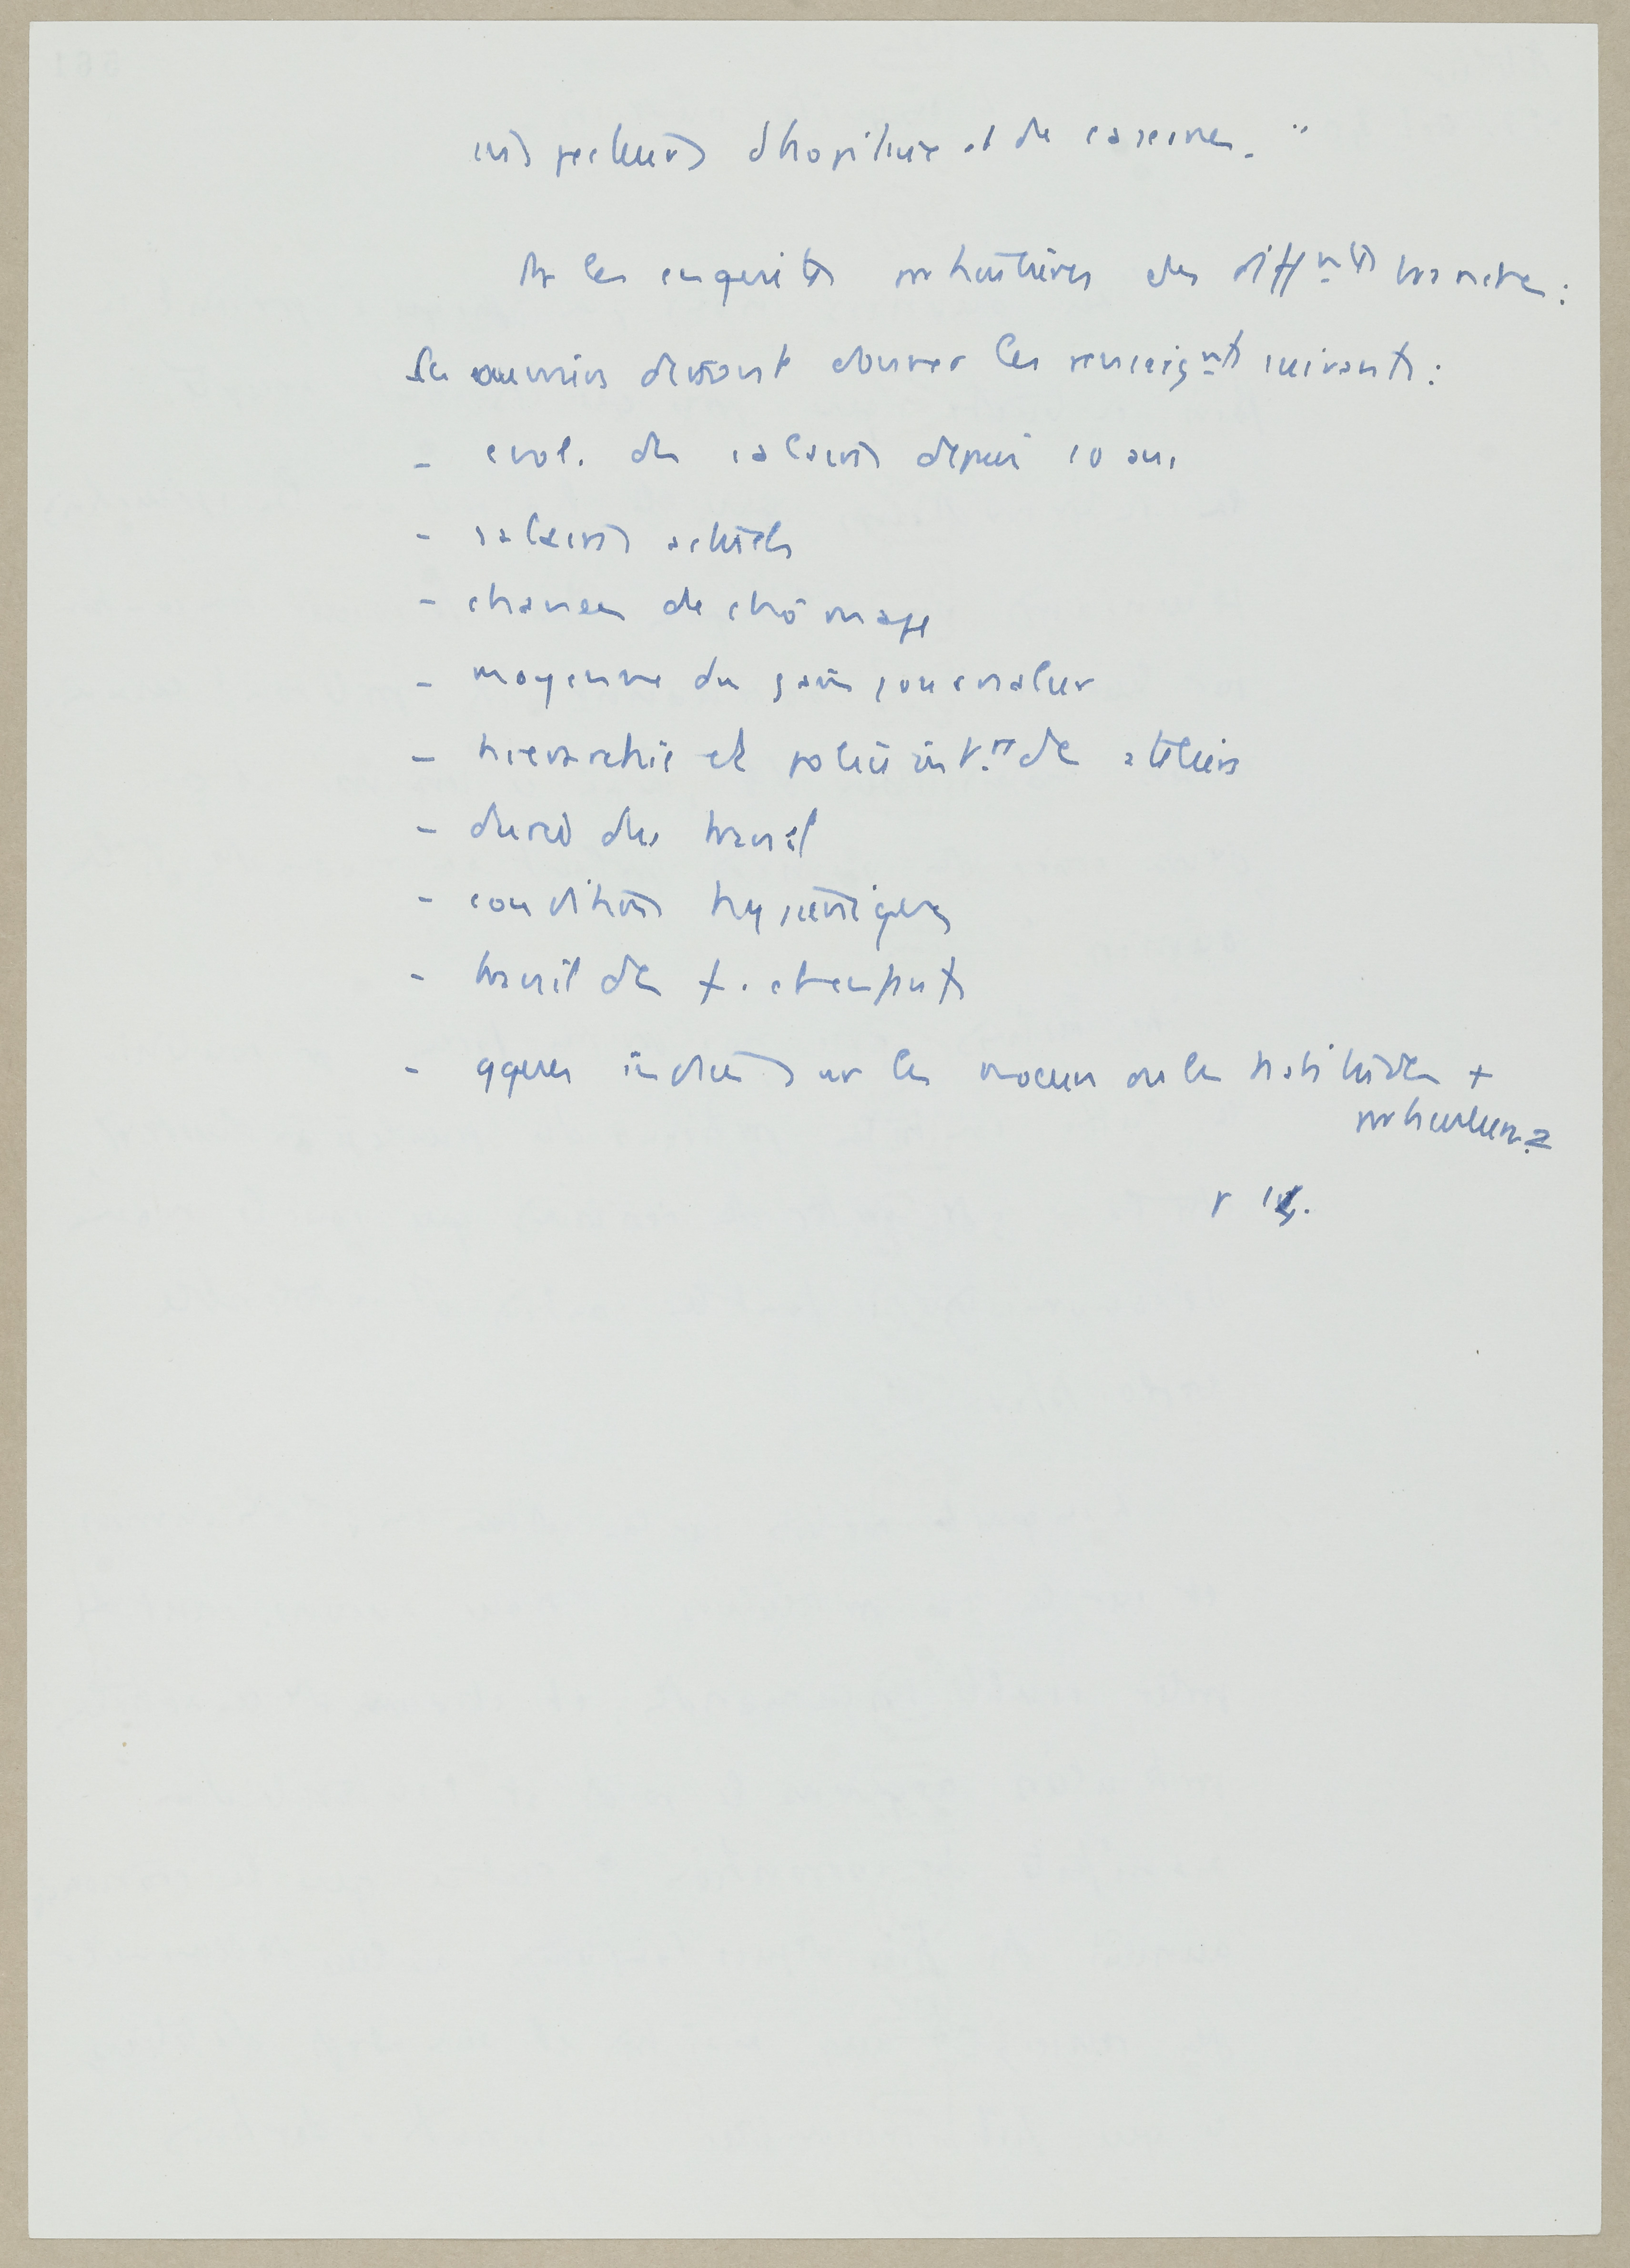 inspecteurs d'hopitaux et de casernes."
Pr les enquetes particulières des diffnts branches :
les ouvriers devront donner les renseignts suivants :
- evol. des salaires depuis 10 ans
- salaires actuels
- chances de chômage
- moyenne du gain journalier
- hierarchie et police intre des ateliers
- durée du travail
- conditions hygieniques
- travail des f. et enfants
- qques indicats sur les mœurs ou les habitudes +
particulières
p 14.